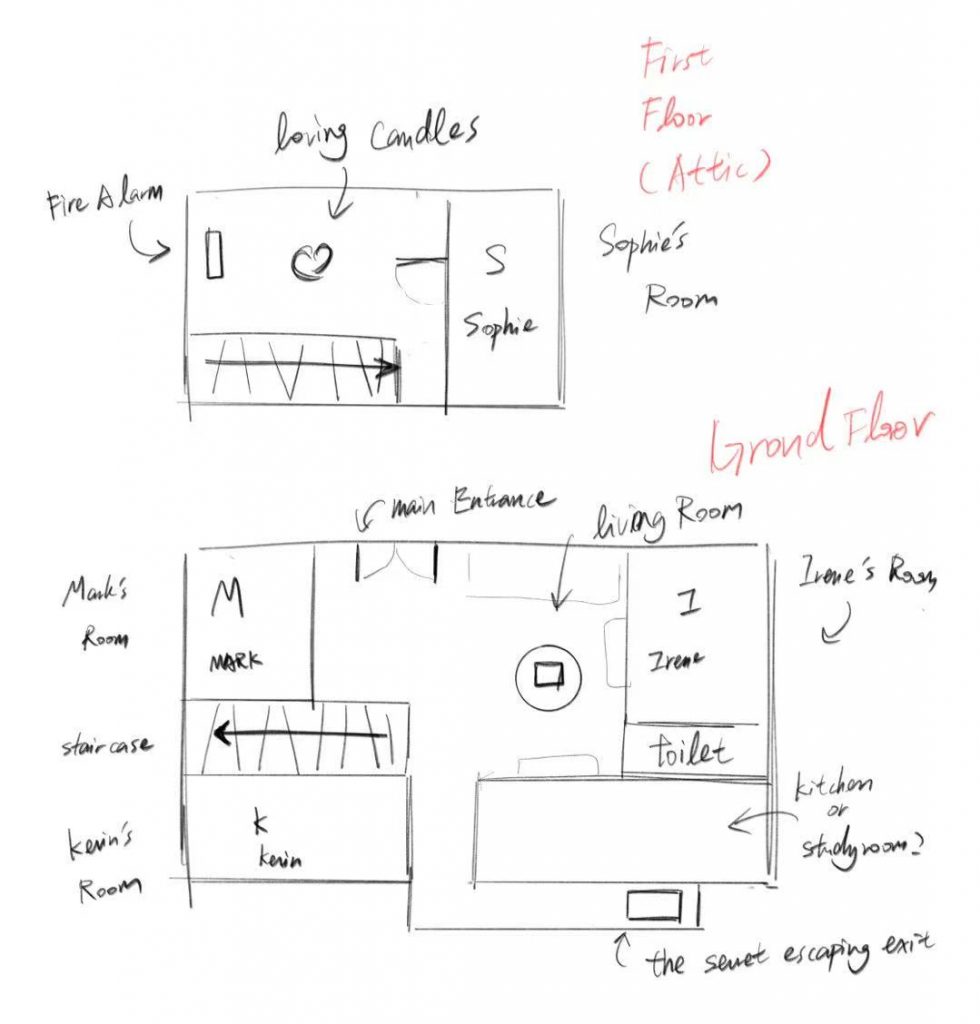 First
Floor
(Attic)
loving candles
Fire Alarm
S
Sophie
Sophie's
Room
Grond Floor
main Entrance
living Room
Mark's
Room
M
MARK
I
Irene
Irene's Room
staircase
toilet
kitchen
or
studyroom?
Kevin's
Room
K
Kevin
the secret escaping exit